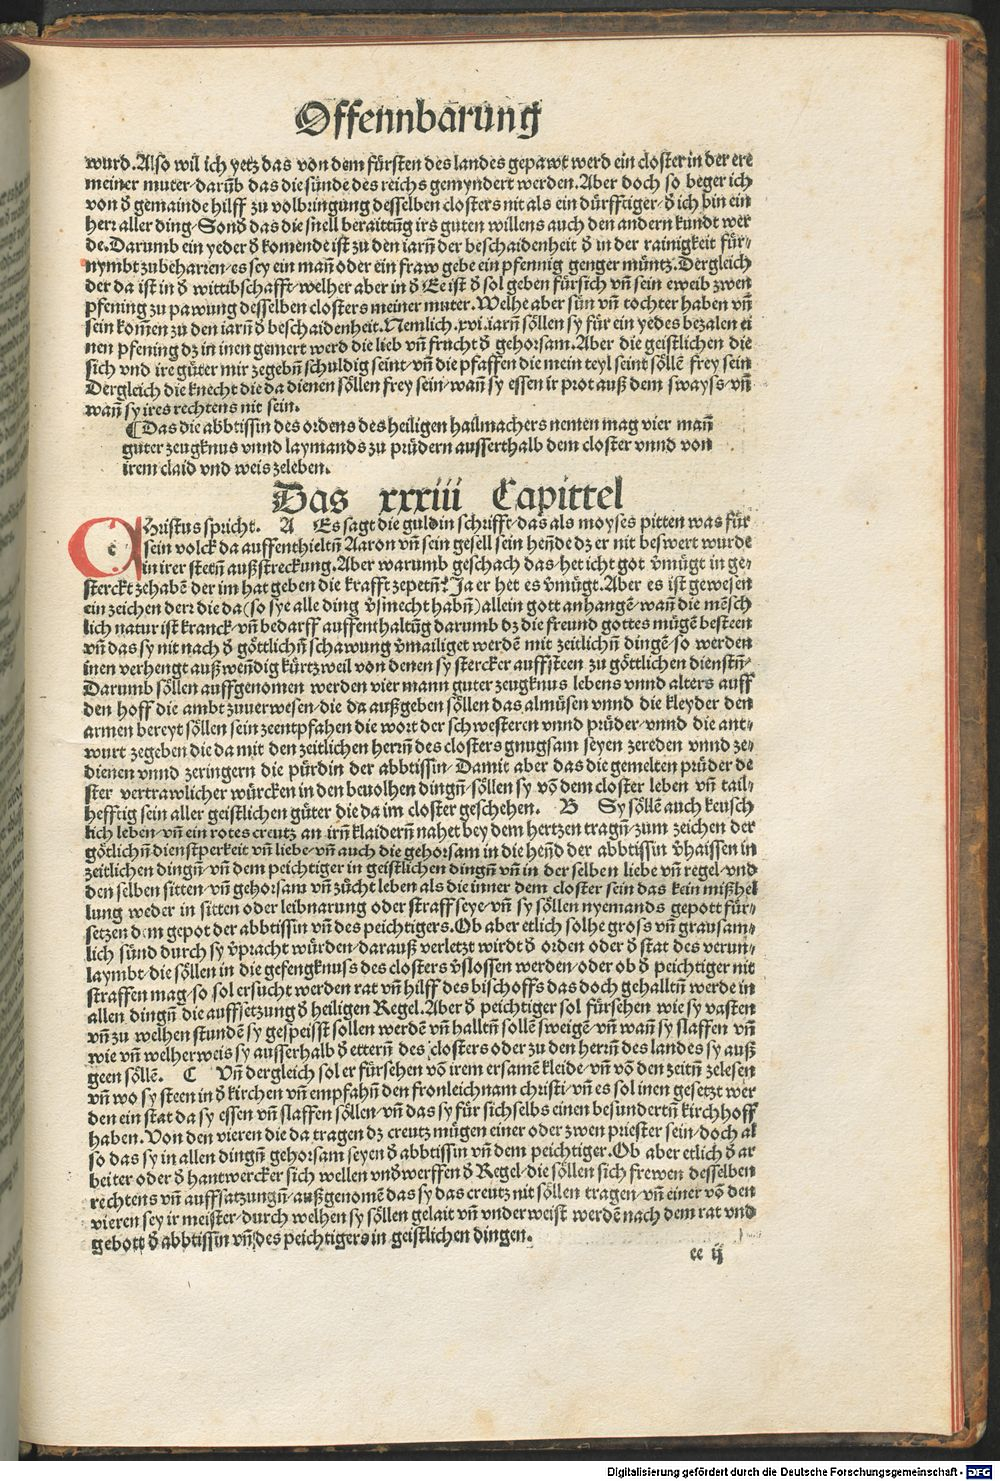 Offennbarung
wurd. Also wil ich yetz das von dem fürsten des landes gepawt werd ein closter in der ere
meiner muter/darūb das die sünde des reichs gemyndert werden. Aber doch so beger ich
von d̄ gemainde hilff zu volbringung desselben closters nit als ein dürfftiger/d̄ ich bin ein
herr aller ding/Sond̄ das die snell beraittūg irs guten willens auch den andern kundt wer
de. Darumb ein yeder d̄ komende ist zu den iarn̄ der beschaidenheit d̄ in der rainigkeit für⸗
nymbt zubeharren/es sey ein man̄ oder ein fraw gebe ein pfennig genger müntz. Dergleich
der da ist in d̄ wittibschafft/welher aber in d̄ Ee ist d̄ sol geben fürsich vn̄ sein eweib zwen
pfening zu pawung desselben closters meiner muter. Welhe aber sün vn̄ tochter haben vn̄
sein kom̄en zu den iarn̄ d̄ beschaidenheit. Nemlich .xvi. iarn̄ söllen sy für ein yedes bezalen ei
nen pfening dz in inen gemert werd die lieb vn̄ frucht d̄ gehorsam. Aber die geistlichen die
sich vnd ire güter mir zegebn̄ schuldig seint/vn̄ die pfaffen die mein teyl seint söllē frey sein
Dergleich die knecht die da dienen söllen frey sein/wan̄ sy essen ir prot auß dem swayss/vn̄
wan̄ sy ires rechtens nit sein.
¶ Das die abbtissin des ordens des heiligen hailmachers nemen mag vier man̄
guter zeugknus vnnd laymands zu prüdern ausserthalb dem closter vnnd von
irem claid vnd weis zeleben.
Das xxxiii Capittel
CHristus spricht. A Es sagt die guldin schrifft/das als moyses pitten was für
sein volck da auffenthieltn̄ Aaron vn̄ sein gesell sein hen̄de dz er nit beswert wurde
in irer stetn̄ außstreckung. Aber warumb geschach das/het icht got v̄mügt in ge⸗
sterckt zehabē der im hat geben die krafft zepetn̄? Ja er het es v̄mügt. Aber es ist gewesen
ein zeichen derr die da (so sye alle ding v̄smecht habn̄) allein gott anhangē/wan̄ die mēsch
lich natur ist kranck/vn̄ bedarff auffenthaltūg darumb dz die freund gottes mügē besteen
vn̄ das sy nit nach d̄ göttlichn̄ schawung v̄mailiget werdē mit zeitlichn̄ dingē/so werden
inen verhengt außwen̄dig kürtzweil von denen sy stercker auffsteen zu göttlichen dienstn̄/
Darumb söllen auffgenomen werden vier mann guter zeugknus lebens vnnd alters auff
den hoff die ambt zuuerwesen/die da außgeben söllen das almüsen vnnd die kleyder den
armen bereyt söllen sein zeentpfahen die wort der schwesteren vnnd prüder/vnnd die ant⸗
wurt zegeben die da mit den zeitlichen herrn̄ des closters gnugsam seyen zereden vnnd ze⸗
dienen vnnd zeringern die pürdin der abbtissin/Damit aber das die gemelten prüder de
ster vertrawlicher würcken in den beuolhen dingn̄/söllen sy vō dem closter leben vn̄ tail⸗
hefftig sein aller geistlichen güter die da im closter geschehen. B Sy söllē auch keusch
lich leben/vn̄ ein rotes creutz an irn̄ klaidern̄ nahet bey dem hertzen tragn̄/zum zeichen der
götlichn̄ dienstperkeit vn̄ liebe/vn̄ auch die gehorsam in die hen̄d der abbtissin v̄haissen in
zeitlichen dingn̄/vn̄ dem peichtiger in geistlichen dingn̄ vn̄ in der selben liebe vn̄ regel/vnd
den selben sitten/vn̄ gehorsam vn̄ zücht leben als die inner dem closter sein das kein mißhel
lung weder in sitten oder leibnarung oder straff seye/vn̄ sy söllen nyemands gepott für⸗
setzen dem gepot der abbtissin vn̄ des peichtigers. Ob aber etlich solhe gross vn̄ grausam⸗
lich sünd durch sy v̄pracht würden/darauß verletzt wirdt d̄ orden oder d̄ stat des verun⸗
laymbt/die söllen in die gefengknuss des closters v̄slossen werden/oder ob d̄ peichtiger nit
straffen mag/so sol ersucht werden rat vn̄ hilff des bischoffs das doch gehalltn̄ werde in
allen dingn̄ die auffsetzung d̄ heiligen Regel. Aber d̄ peichtiger sol fürsehen wie sy vasten
vn̄ zu welhen stundē sy gespeisst sollen werdē vn̄ halltn̄ sollē sweigē/vn̄ wan̄ sy slaffen vn̄
wie vn̄ welherweis sy ausserhalb d̄ ettern̄ des closters oder zu den herrn̄ des landes sy auß
geen söllē. C Vn̄ dergleich sol er fürsehen vō irem ersamē kleide/vn̄ vō den zeitn̄ zelesen
vn̄ wo sy steen in d̄ kirchen vn̄ empfahn̄ den fronleichnam christi/vn̄ es sol inen gesetzt wer
den ein stat da sy essen vn̄ slaffen söllen/vn̄ das sy für sichselbs einen besundertn̄ kirchhoff
haben. Von den vieren die da tragen dz creutz mügen einer oder zwen priester sein/doch al
so das sy in allen dingn̄ gehorsam seyen d̄ abbtissin vn̄ dem peichtiger. Ob aber etlich d̄ ar
beiter oder d̄ hantwercker sich wellen vnd̄werffen d̄ Regel/die söllen sich frewen desselben
rechtens vn̄ auffsatzungn̄/außgenomē das sy das creutz nit söllen tragen/vn̄ einer vō den
vieren sey ir meister/durch welhen sy söllen gelait vn̄ vnderweist werdē nach dem rat vnd
gebott d̄ abbtissin vn̄ des peichtigers in geistlichen dingen.
ee ij
Digitalisierung gefördert durch die Deutsche Forschungsgemeinschaft - DFG